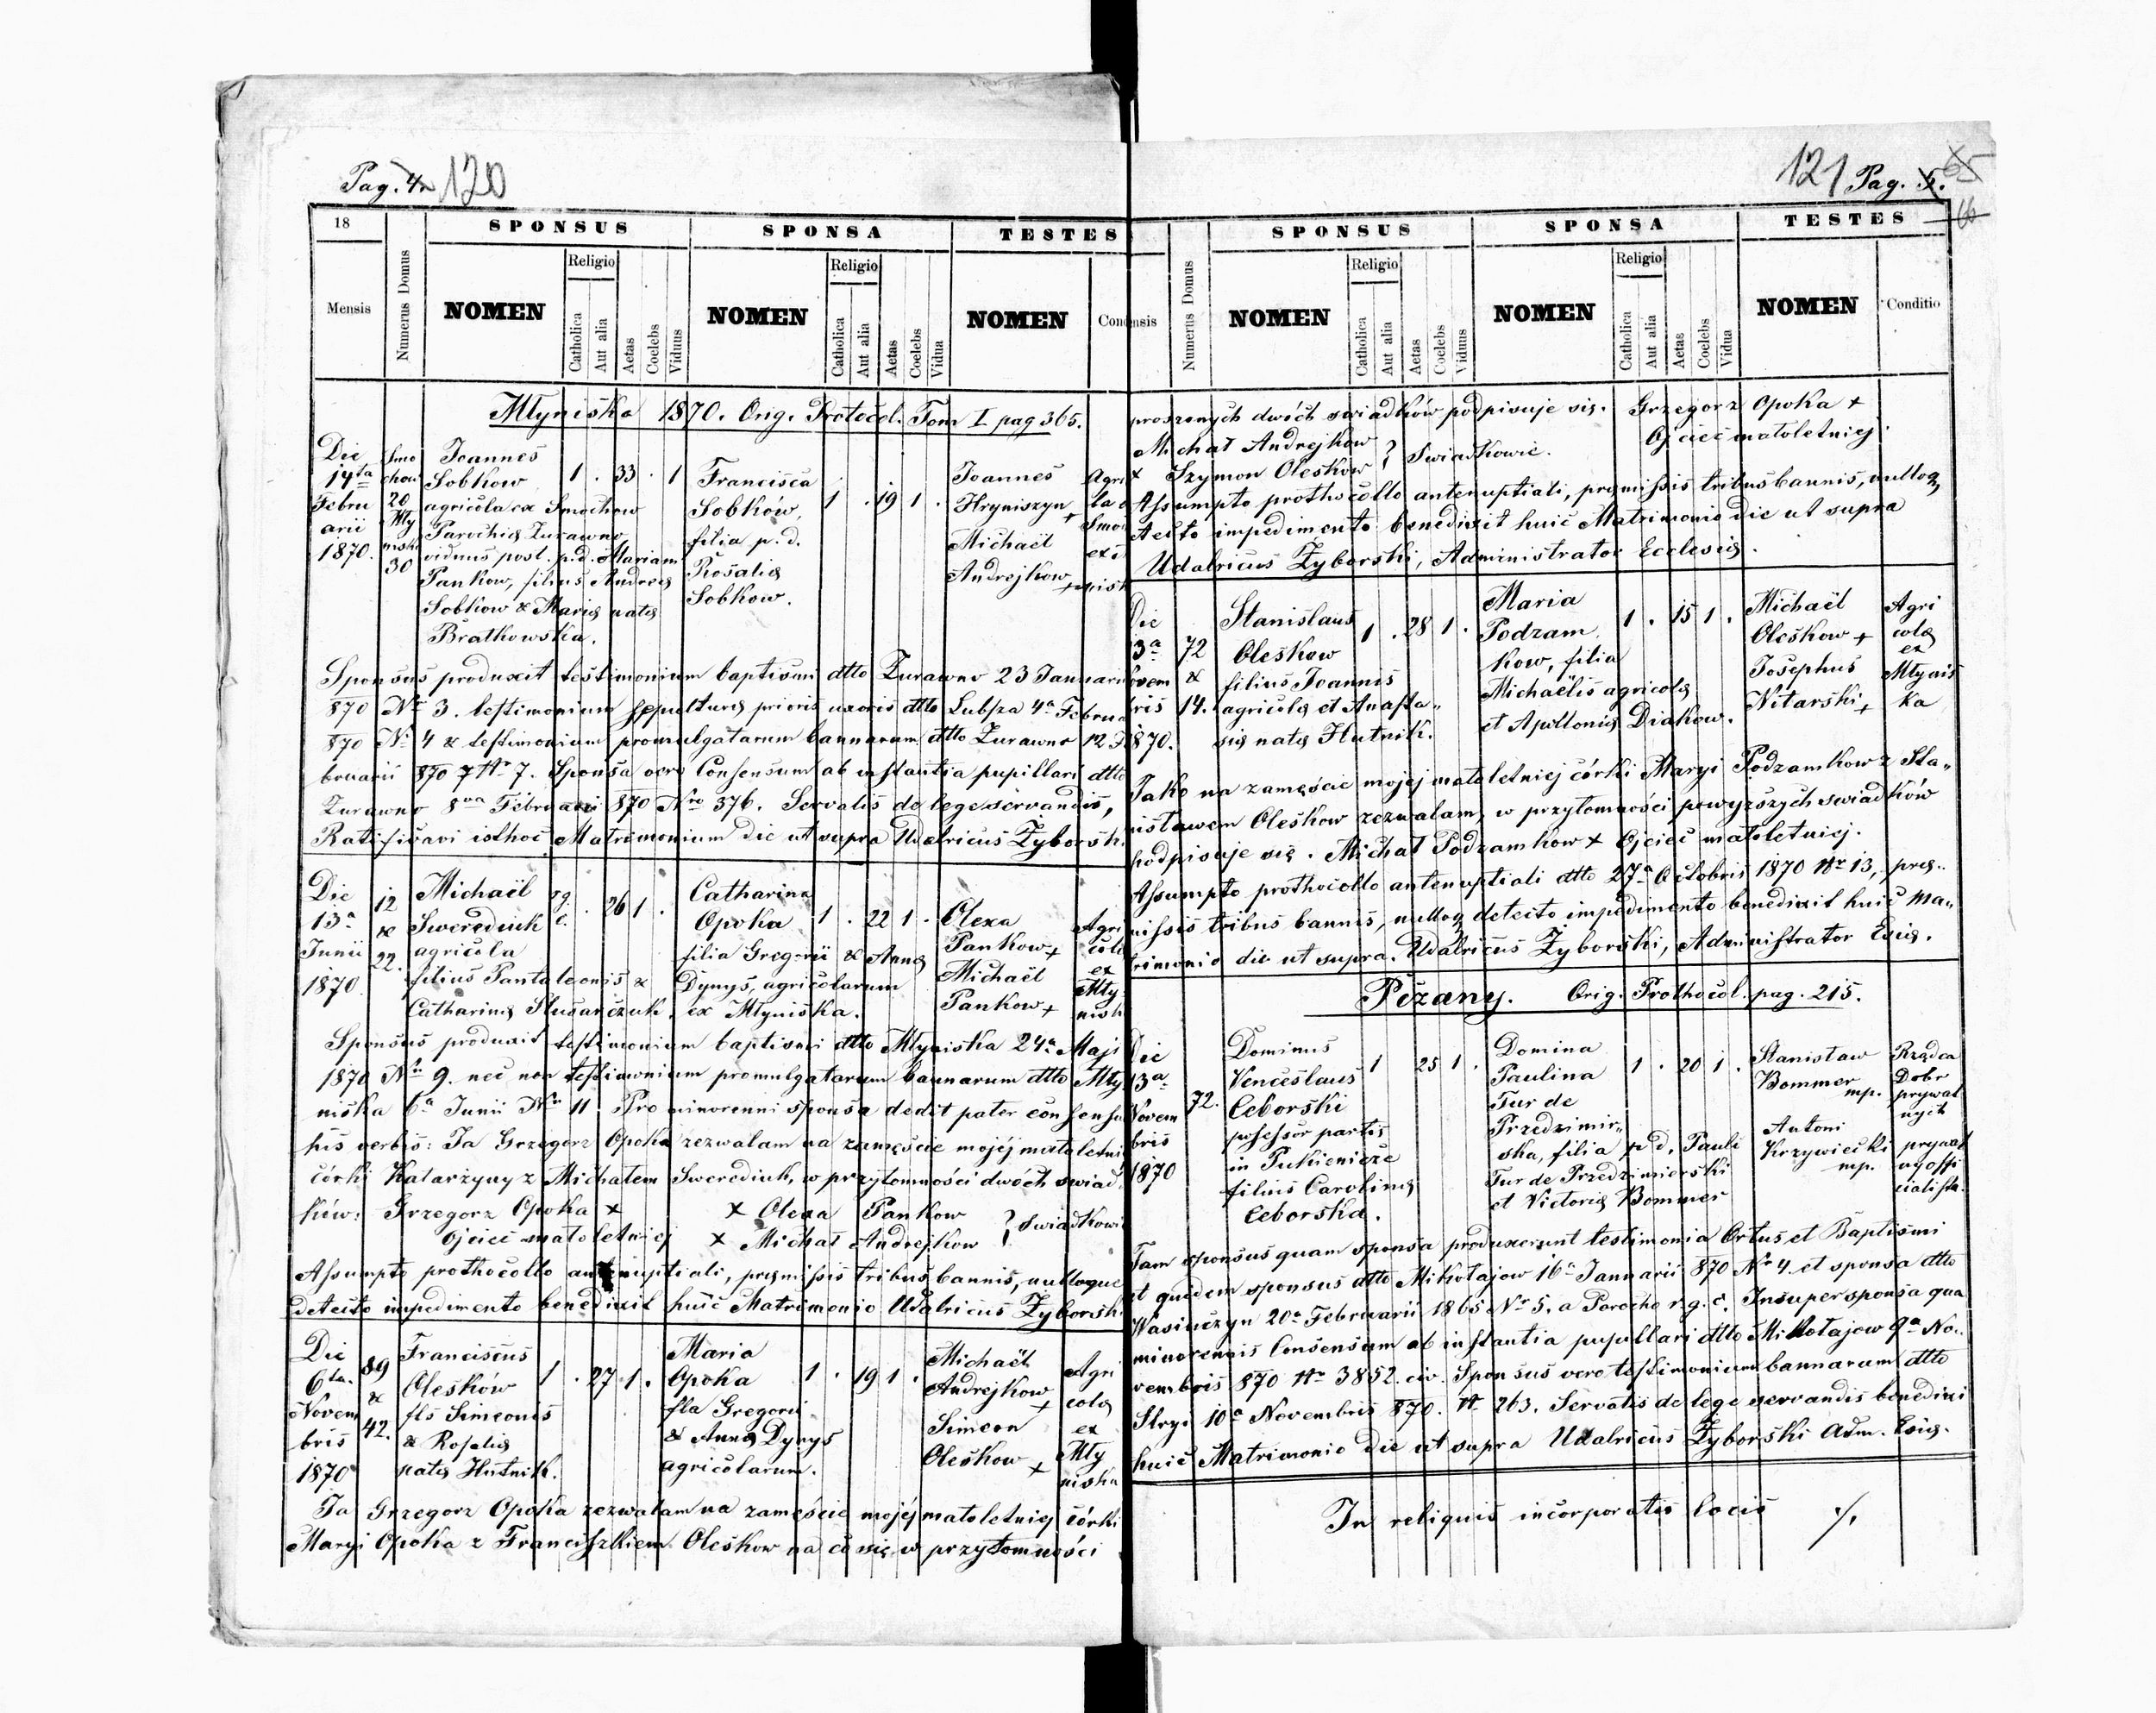 Pag. 4. 120
18
Mensis
Numerus Domus
SPONSUS
NOMEN
Religio
Catholica
Aut alia
Aetas
Coelebs
Viduus
SPONSA
NOMEN
Religio
Catholica
Aut alia
Aetas
Coelebs
Vidua
TESTES
NOMEN
Con
Młyniska 1870. Orig. Protocol. Tom I pag 365.
Die
14ta
Febru
arii
1870.
Smo
chow
20
Mły
nisk
30
Joannes
Sobkow
agricola ex Smochow
Parochię Żurawno
viduus post. p. d. Mariam
Pankow, filius Andreę
Sobkow & Marię natę
Bratkowska.
1 . 33 . 1
Francisca
Sobków,
filia p. d.
Rosalię
Sobkow.
1 . 19 1 .
Joannes
Hryniszyn +
Michaël
Andrejkow +
Agri
la e
Smo
ex
nisk
Sponsus produxit testimonium baptismi dtto Żurawno 23 Januari
870 Nr 3. testimonium sepulturę prioris uxoris dtto Lubsza 4a Februa
870 Nr 4 & testimonium promulgatarum bannarum dtto Żurawno 12 F
bruarii 870 Nr 7. Sponsa vero Consensum ab instantia pupillari dtto
Żurawno 8va Februarii 870 Nro 376. Servatis de lege servandis,
Ratificavi isthoc Matrimonium die ut supra Udalricus Żyborski
Die
13a
Junii
1870
12
&
22.
Michaël
Swerediuk
agricola
filius Pantaleonis &
Catharinę Slusarczuk.
rg.
c.
. 26 1 .
Catharina
Opoka
filia Gregorii & Annę
Dynys, agricolarum
ex Młyniska.
1 . 22 1 .
Olexa
Pankow +
Michaël
Pankow +
Agri
colę
ex
Mły
nisk
Sponsus produxit testimonium baptismi dtto Młyniska 24a Maji
1870 Nr 9. nec non testimonium promulgatarum bannarum dtto Mły
niska 6a Junii Nr 11. Pro minorenni sponsa dedit pater consensu
his verbis: Ja Grzegorz Opoka zezwalam na zamęście mojéj małoletni
córki Katarzyny z Michałem Swerediuk, w przytomności dwóch świad
ków: Grzegorz Opoka + + Olexa Pankow
Ojciec małoletniej + Michał Andrejkow } Swiadkowi
Assumpto prothocollo antenuptiali, pręmissis tribus bannis, nulloque
detecto impedimento benedixit huic Matrimonio Udalricus Żyborski
Die
6ta
Novem
bris
1870
89
&
42.
Franciscus
Oleśków
fls Simeonis
& Rosalię
natę Hutnik.
1 . 27 1 .
Maria
Opoka
fla Gregorii
& Annę Dynys
agricolarum.
1 . 19 1 .
Michaël
Andrejkow +
Simeon
Oleśkow +
Agri
colę
ex
Mły
niska
Ja Grzegorz Opoka zezwalam na zamęście mojéj małoletniej córki
Maryi Opoka z Franciszkiem Oleśkow na co się w przytomności
121 Pag. 5. 65
66
nsis
Numerus Domus
SPONSUS
NOMEN
Religio
Catholica
Aut alia
Aetas
Coelebs
Viduus
SPONSA
NOMEN
Religio
Catholica
Aut alia
Aetas
Coelebs
Vidua
TESTES
NOMEN
Conditio
proszonych dwóch swiadków podpisuje się. Grzegorz Opoka +
Michał Andrejkow Ojciec małoletniej.
+ Szymon Oleskow } Swiadkowie.
Assumpto prothocollo antenuptiali, pręmissis tribus bannis, nulloq
tecto impedimento benedixit huic Matrimonio die ut supra
Udalricus Żyborski, Administrator Ecclesię.
Die
3a
ovem
ris
870.
72
&
14.
Stanislaus
Oleskow
filius Joannis
agricolę et Anasta„
się natę Hutnik.
1 . 28 1 .
Maria
Podzam
kow, filia
Michaëlis agricolę
et Apollonię Diakow.
1 . 15 1 .
Michaël
Oleskow +
Josephus
Nitarski +
Agri
colę
ex
Młynis
ka
Jako na zamęście mojej małoletniej córki Maryi Podzamkow z Sta„
nisławem Oleśkow zezwalam, w przytomności powyższych swiadków
podpisuje się. Michał Podzamkow + Ojciec małoletniej.
Assumpto prothocollo antenuptiali dtto 27a Octobris 1870 Nr 13, pręm
nissis tribus bannis, nulloq detecto impedimento benedixit huic Ma„
trimonio die ut supra. Udalricus Żyborski, Administrator Eccię.
Pczany. Orig. Prothocol. pag. 215.
Die
13a
Novem
bris
1870
72.
Dominus
Venceslaus
Ceborski
possessor partis
in Pukienicze
filius Carolinę
Ceborska.
1 25 1 .
Domina
Paulina
Tur de
Przedzimir„
ska, filia p. d. Pauli
Tur de Przedzimierski
et Victorię Bommer
1 . 20 1 .
Stanisław
Bommer
mp.
Antoni
Krzywiecki
mp.
Rządca
Dobr
prywat
nych
prywat
ny offi
cialista.
Tam sponsus quam sponsa produxerunt testimonia Ortus et Baptismi
et quędem sponsus dtto Mikołajow 16a Januarii 870 Nr 4. et sponsa dtto
Wasiuczyn 20a Februarii 1865 Nr 5. a Parocho r. g. c. Insuper sponsa qua
minorennis Consensum ab instantia pupillari dtto Mikołajow 9a No„
vembris 870 Nr 3852. civ. Sponsus vero testimonium bannarum dtto
Stryi 10a Novembris 870. N. 263. Servatis de lege servandis benedixi
huic Matrimonio die ut supra Udalricus Żyborski Adm. Eccię.
In reliquis incorporatis locis ./.